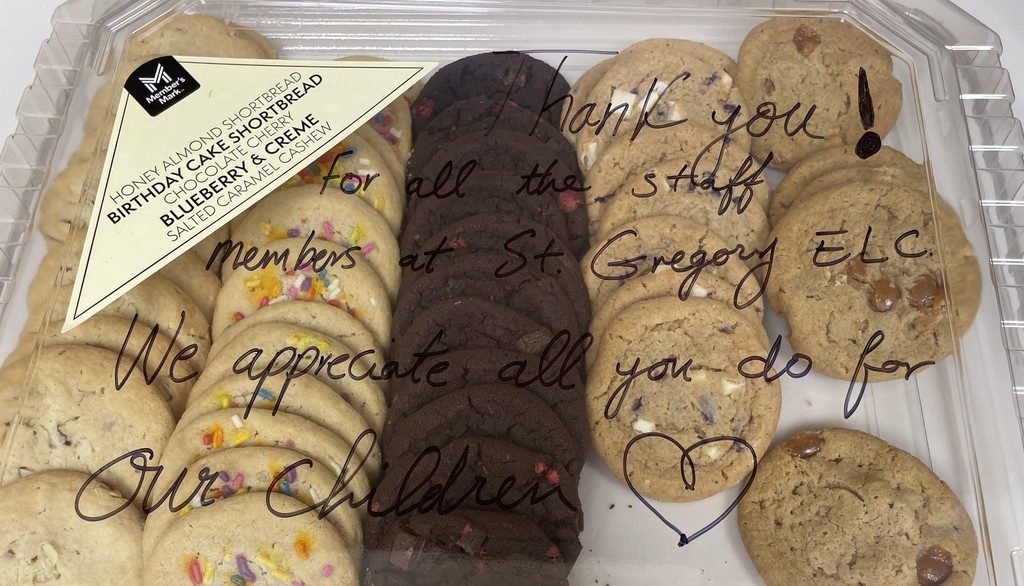 Member's
Mark™
HONEY ALMOND SHORTBREAD
BIRTHDAY CAKE SHORTBREAD
CHOCOLATE CHERRY
BLUEBERRY & CREME
SALTED CARAMEL CASHEW
Thank you!
For all the staff
members at St. Gregory ELC.
We appreciate all you do for
Our Children